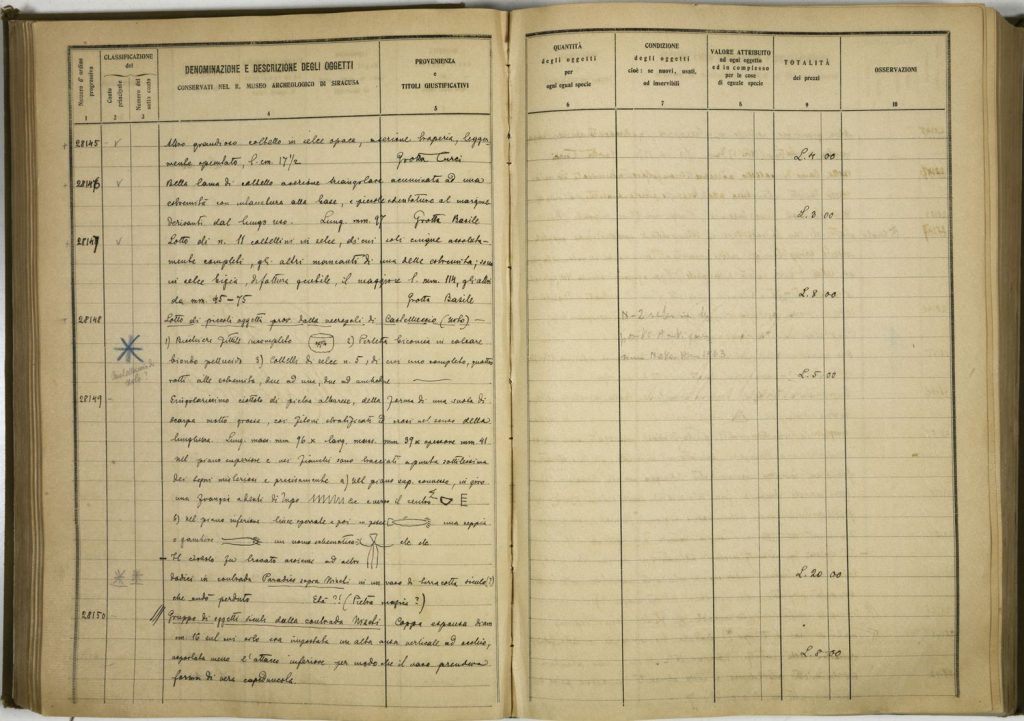 Numero d'ordine progressivo
CLASSIFICAZIONE
del
Conto principale
Numero del sotto conto
DENOMINAZIONE E DESCRIZIONE DEGLI OGGETTI
CONSERVATI NEL R. MUSEO ARCHEOLOGICO DI SIRACUSA
PROVENIENZA
e
TITOLI GIUSTIFICATIVI
1 2 3 4 5
28145 v Altro grandioso coltello in selce opaca, a sezione trapezia, legger
mente spuntato, l. cm. 17 1/2 Grotta Curci
28146 v Bella lama di coltello a sezione triangolare acuminata ad una
estremità con intaccatura alla base, e piccole sdentature al margine
derivanti dal lungo uso. Lung. mm. 97 Grotta Basile
28147 v Lotto di n. 11 coltellini in selce, di cui soli cinque assoluta-
mente completi, gli altri mancanti di una delle estremità; sono
in selce bigia, di fattura gentile, il maggiore l. mm. 114, gli altri
da mm. 95-75 Grotta Basile
28148 Lotto di piccoli oggetti prov. dalla necropoli di Castelluccio (Noto) —
1) Bicchiere fittile incompleto 2) Perletta biconica in calcare
biondo pellucido 3) Coltelli di selce n. 5, di cui uno completo, quattro
rotti alle estremità, due ad una, due ad ambedue
28149 Singolarissimo ciottolo di pietra alberese, della forma di una suola di
scarpa molto grossa, con filoni stratificati ed erosi nel senso della
lunghezza. Lung. mass. mm 96 x larg. mass. mm 39 x spessore mm. 41
Nel piano superiore e nei fianchi sono tracciati a punta sottilissima
dei segni misteriosi e precisamente a) nel piano sup. convesso, in giro
una frangia a denti di lupo ecc e verso il centro
b) Nel piano inferiore linee sporrate e poi un pesce una seppia
o gambero un uomo schematico etc. etc.
— Il ciottolo fu trovato assieme ad altri
dodici in contrada Paradiso sopra Noto in un vaso di terracotta siculo (?)
che andò perduto Età ?! (Pietra magica?)
28150 Gruppo di oggetti siculi dalla contrada Coppa espansa diam
cm. 16 sul cui orlo era impostata un alta ansa verticale ad occhio,
asportata meno l'attacco inferiore per modo che il vaso prendeva
forma di vera capeduncola.
QUANTITÀ
degli oggetti
per
ogni egual specie
CONDIZIONE
degli oggetti
cioè: se nuovi, usati,
od inservibili
VALORE ATTRIBUITO
ad ogni oggetto
ed in complesso
per le cose
di eguale specie
TOTALITÀ
dei prezzi
OSSERVAZIONI
6 7 8 9 10
L. 4 00
L. 3 00
L. 8 00
L. 5 00
L. 20 00
L. 8 00